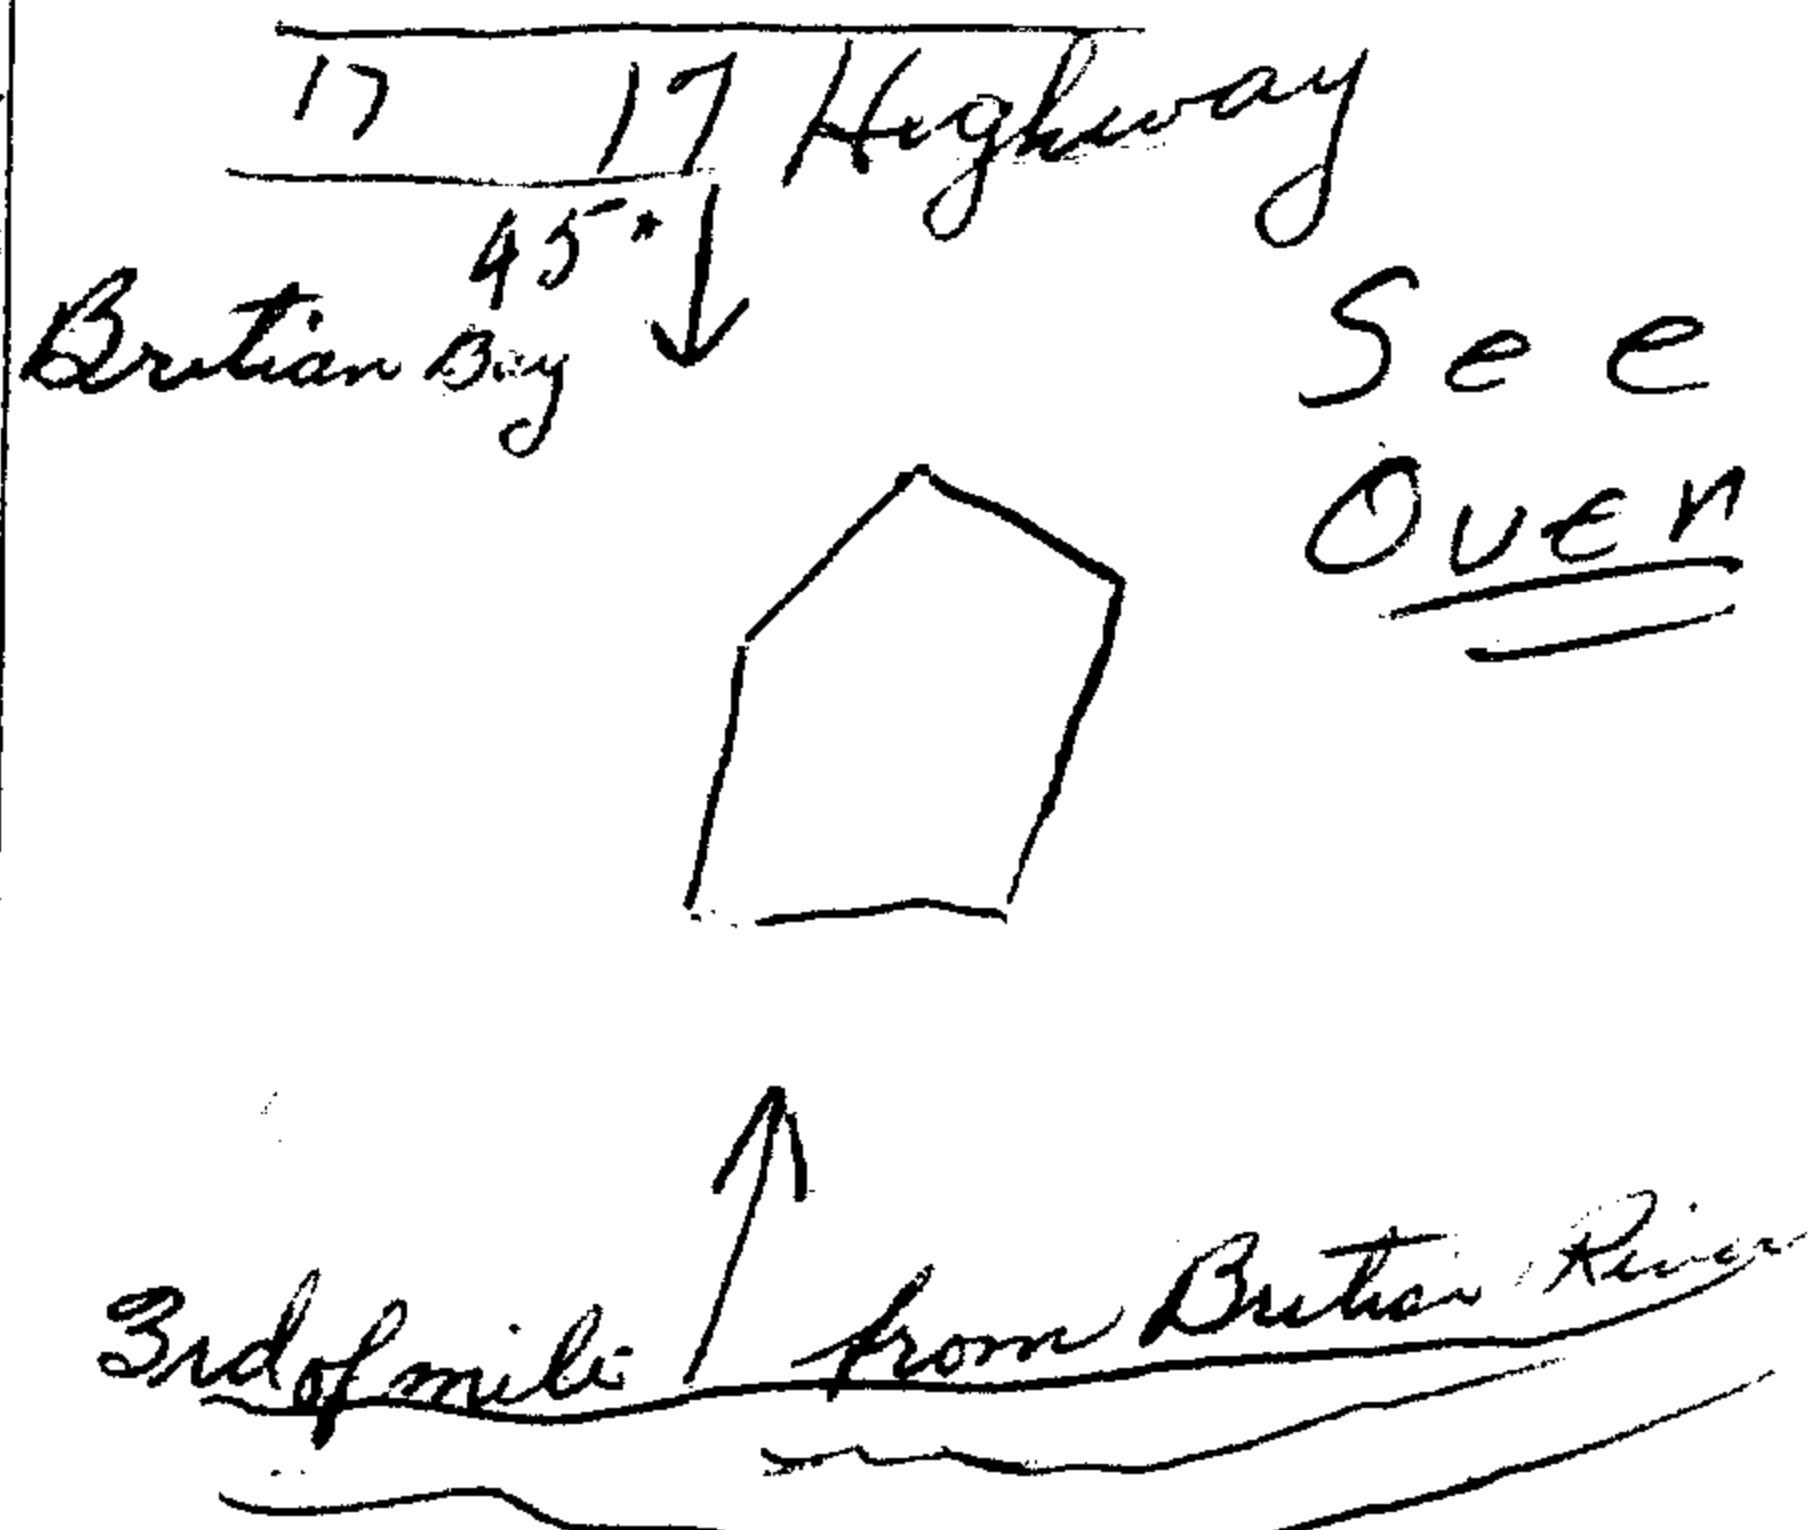 17 17 Highway
45°
Britian Bay
See
Over
3rd of mile from Britian River